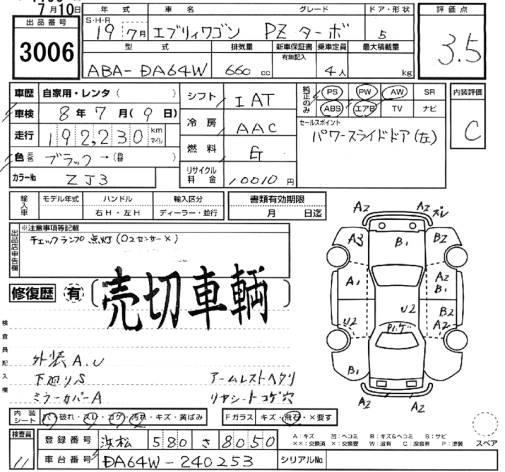 7月10日
出品番号
3006
年式 車名 グレード ドア・形状
S・H・R 19年7月 エブリィワゴン PZターボ 5
型式 排気量 新車保証書 乗車定員 最大積載量
有無記入
ABA-DA64W 660cc 4人 kg
評価点
3.5
車歴 自家用・レンタ
車検 8年7月(9日)
走行 192,230 km マイル
色 ブラック→
カラーNo ZJ3
シフト IAT
冷房 AAC
燃料 G
リサイクル料金 10010円
純正のみ PS PW AW SR
ABS エアB TV ナビ
セールスポイント
パワースライドドア(左)
内装評価
C
輸入車 モデル年式 ハンドル 輸入区分
年 右H・左H ディーラー・並行
書類有効期限
月 日迄
出品店申告欄
※注意事項等記載
チェックランプ点灯(O2センサー×)
修復歴 有
売切車輌
検査員記入欄
外装A.U
下廻りS
ミラーカバーA
アームレストヘタリ
リヤシートコゲ穴
A2 A2
A3 B1 B2
A1 B2 A1
U2
U2 B2 A2
B1
A2 A2
内装シート 破れ・スレ・コゲ・汚れ・キズ・黄ばみ
Fガラス キズ・飛石・×要す
スペア
検査員
11
登録番号 浜松 580 さ 8050
車台番号 DA64W-240253
シリアルNo
A:キズ U:ヘコミ B:キズ&ヘコミ S:サビ